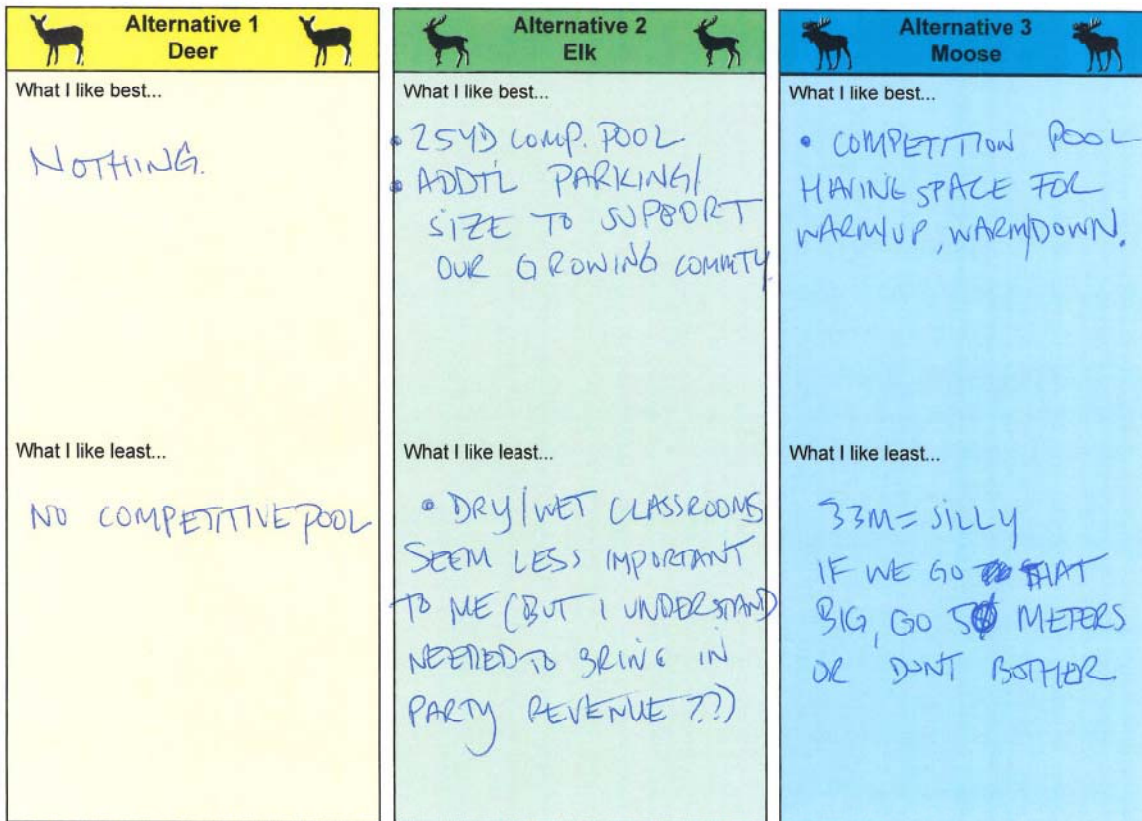 Alternative 1
Deer
What I like best...
NOTHING.
What I like least...
NO COMPETITIVE POOL
Alternative 2
Elk
What I like best...
• 25YD COMP. POOL
• ADDTL PARKING/
SIZE TO SUPPORT
OUR GROWING COMMTY.
What I like least...
• DRY/WET CLASSROOMS
SEEM LESS IMPORTANT
TO ME (BUT I UNDERSTAND
NEEDED TO BRING IN
PARTY REVENUE??)
Alternative 3
Moose
What I like best...
• COMPETITION POOL
HAVING SPACE FOR
WARM/UP, WARM/DOWN.
What I like least...
33M = SILLY
IF WE GO THAT
BIG, GO 50 METERS
OR DONT BOTHER.